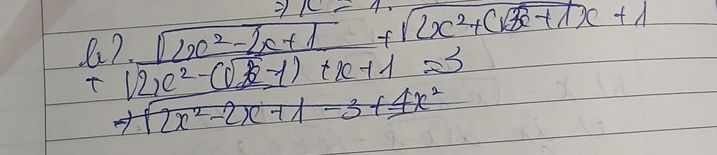 ⇒ x = 1.
b). √2x²-2x+1 + √2x²+(√3+1)x+1
+ √2x²-(√3-1)+x+1 = 3
→ √2x²-2x+1 - 3 + 4x²